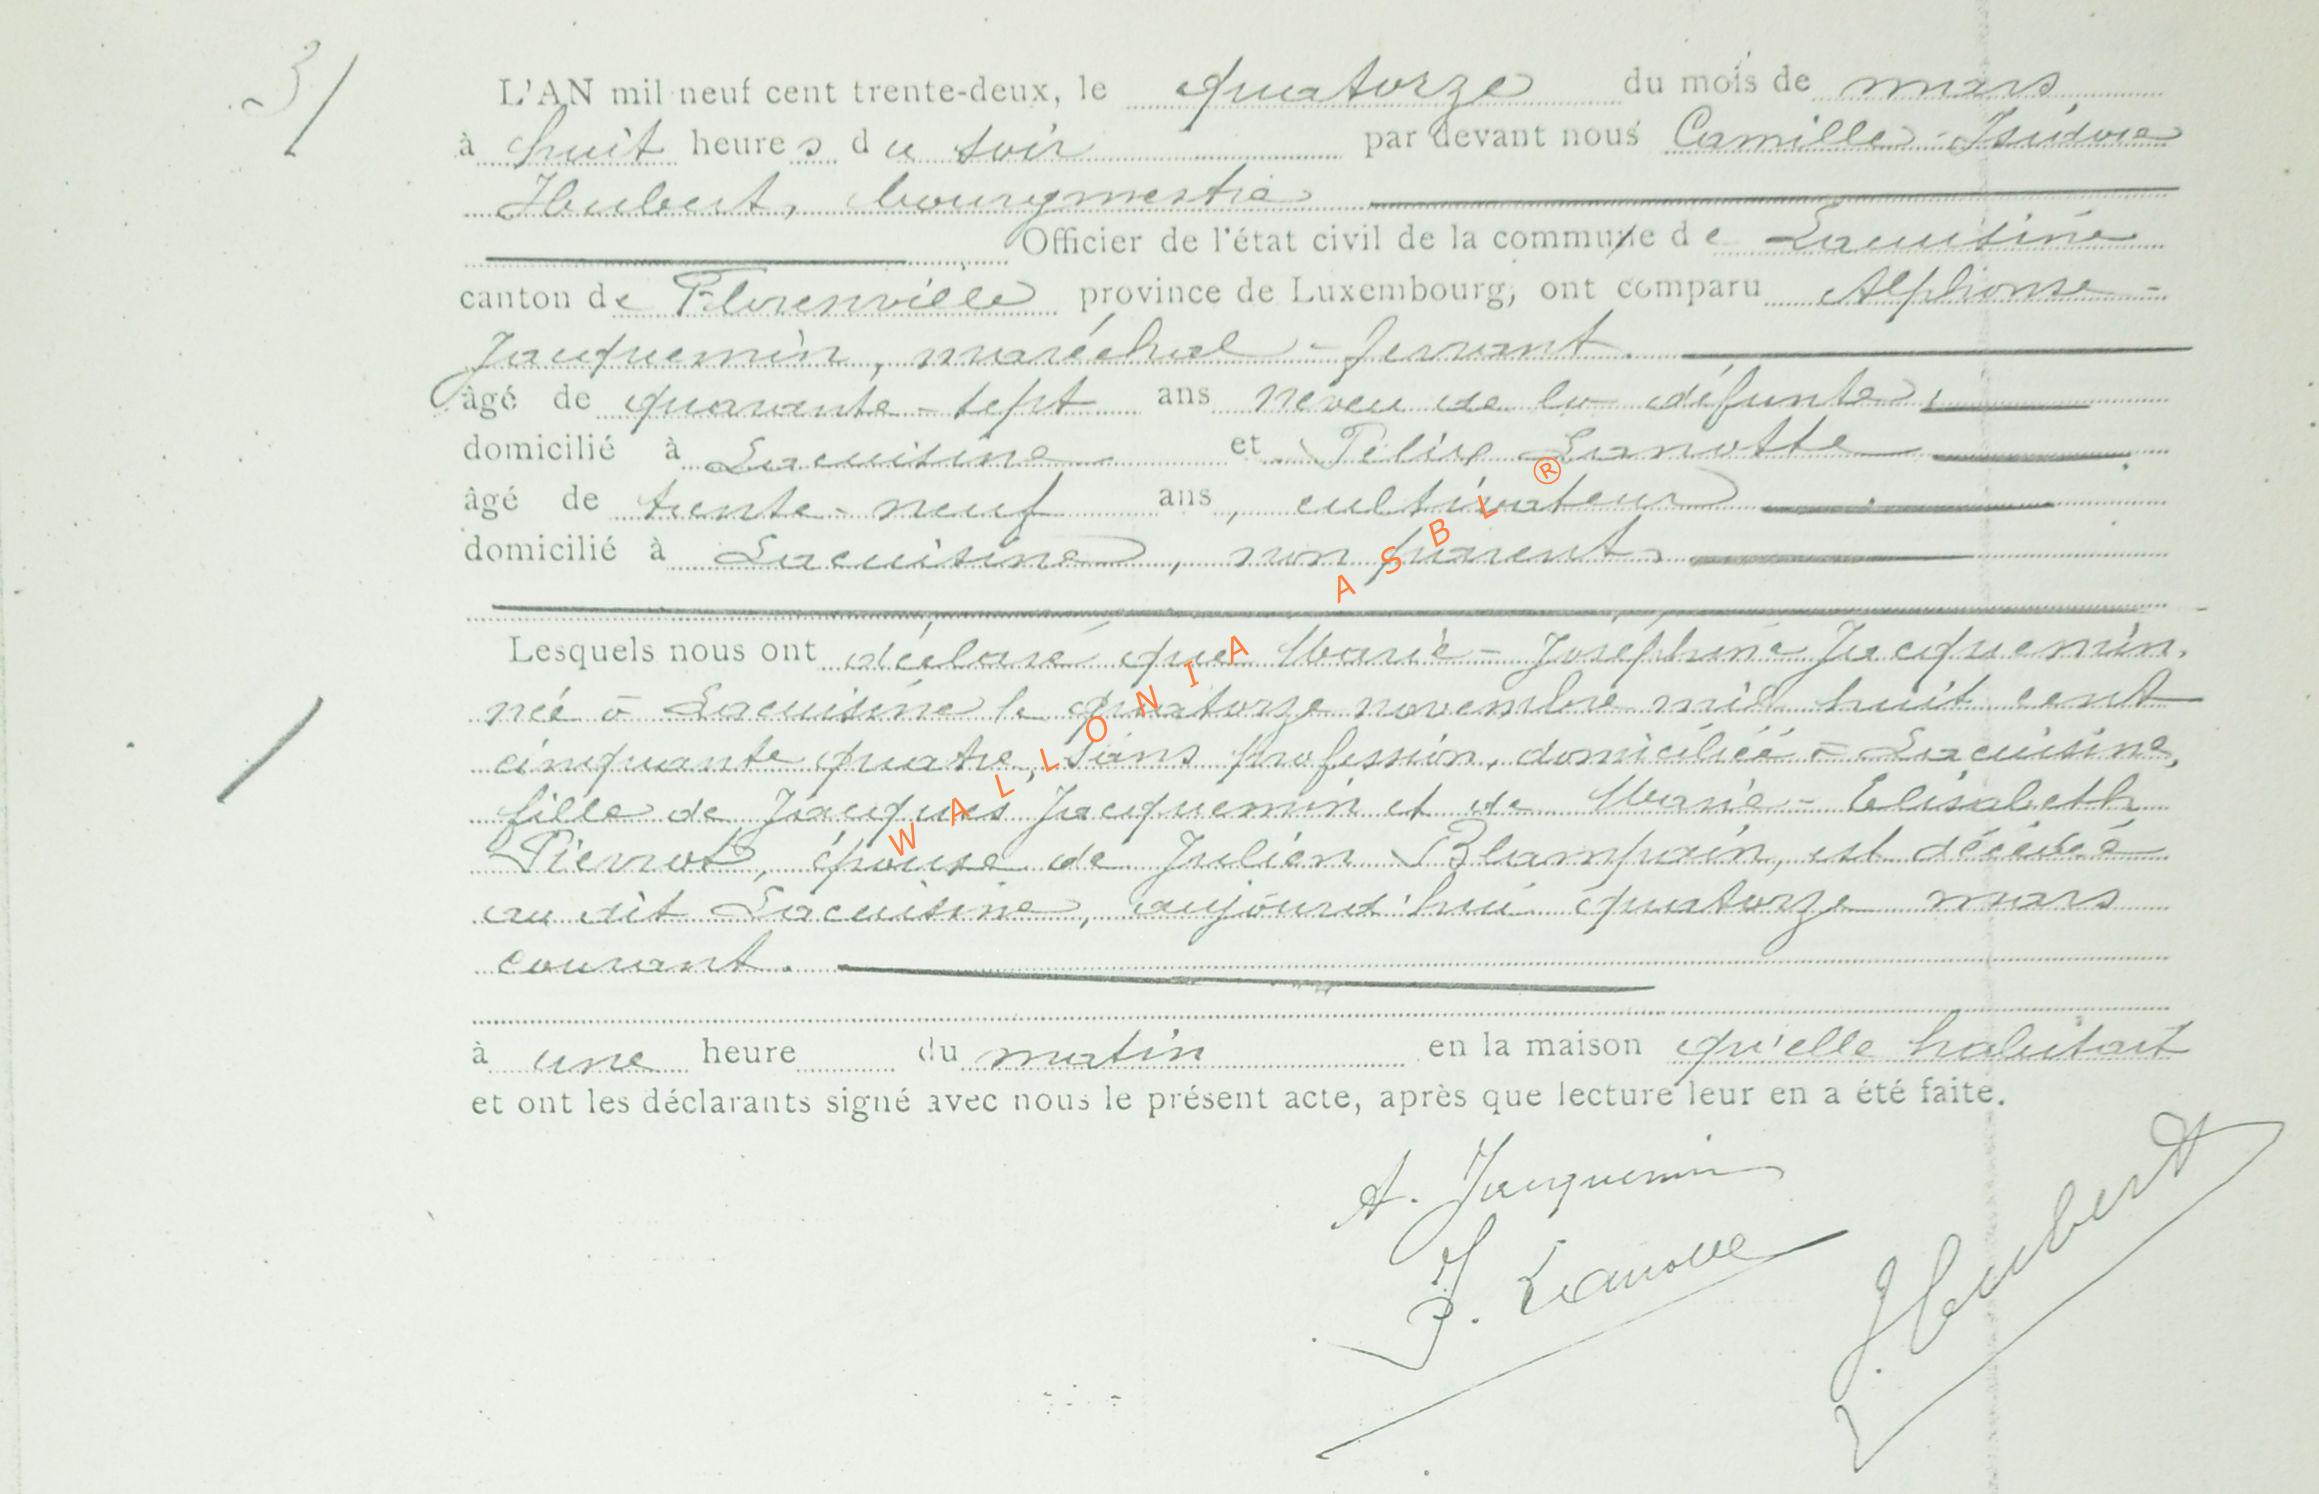 3/
L'AN mil neuf cent trente-deux, le quatorze du mois de mars
à huit heures du soir par devant nous Camille-Isidore
Hubert, bourgmestre
Officier de l'état civil de la commune de Lacuisine
canton de Florenville province de Luxembourg, ont comparu Alphonse-
Jacquemin, maréchal-ferrant.
âgé de quarante-sept ans neveu de la défunte,
domicilié à Lacuisine et Félix Lanotte
âgé de trente-neuf ans, cultivateur
domicilié à Lacuisine, non parent.
Lesquels nous ont déclaré que Marie-Joséphine Jacquemin,
née à Lacuisine le quatorze novembre mil huit cent
cinquante quatre, sans profession, domiciliée à Lacuisine,
fille de Jacques Jacquemin et de Marie-Elisabeth
Pierrot, épouse de Julien Blampain, est décédée
au dit Lacuisine, aujourd'hui quatorze mars
courant.
à une heure du matin en la maison qu'elle habitait
et ont les déclarants signé avec nous le présent acte, après que lecture leur en a été faite.
A. Jacquemin
F. Lanotte
Hubert
WALLONIA ASBL ®